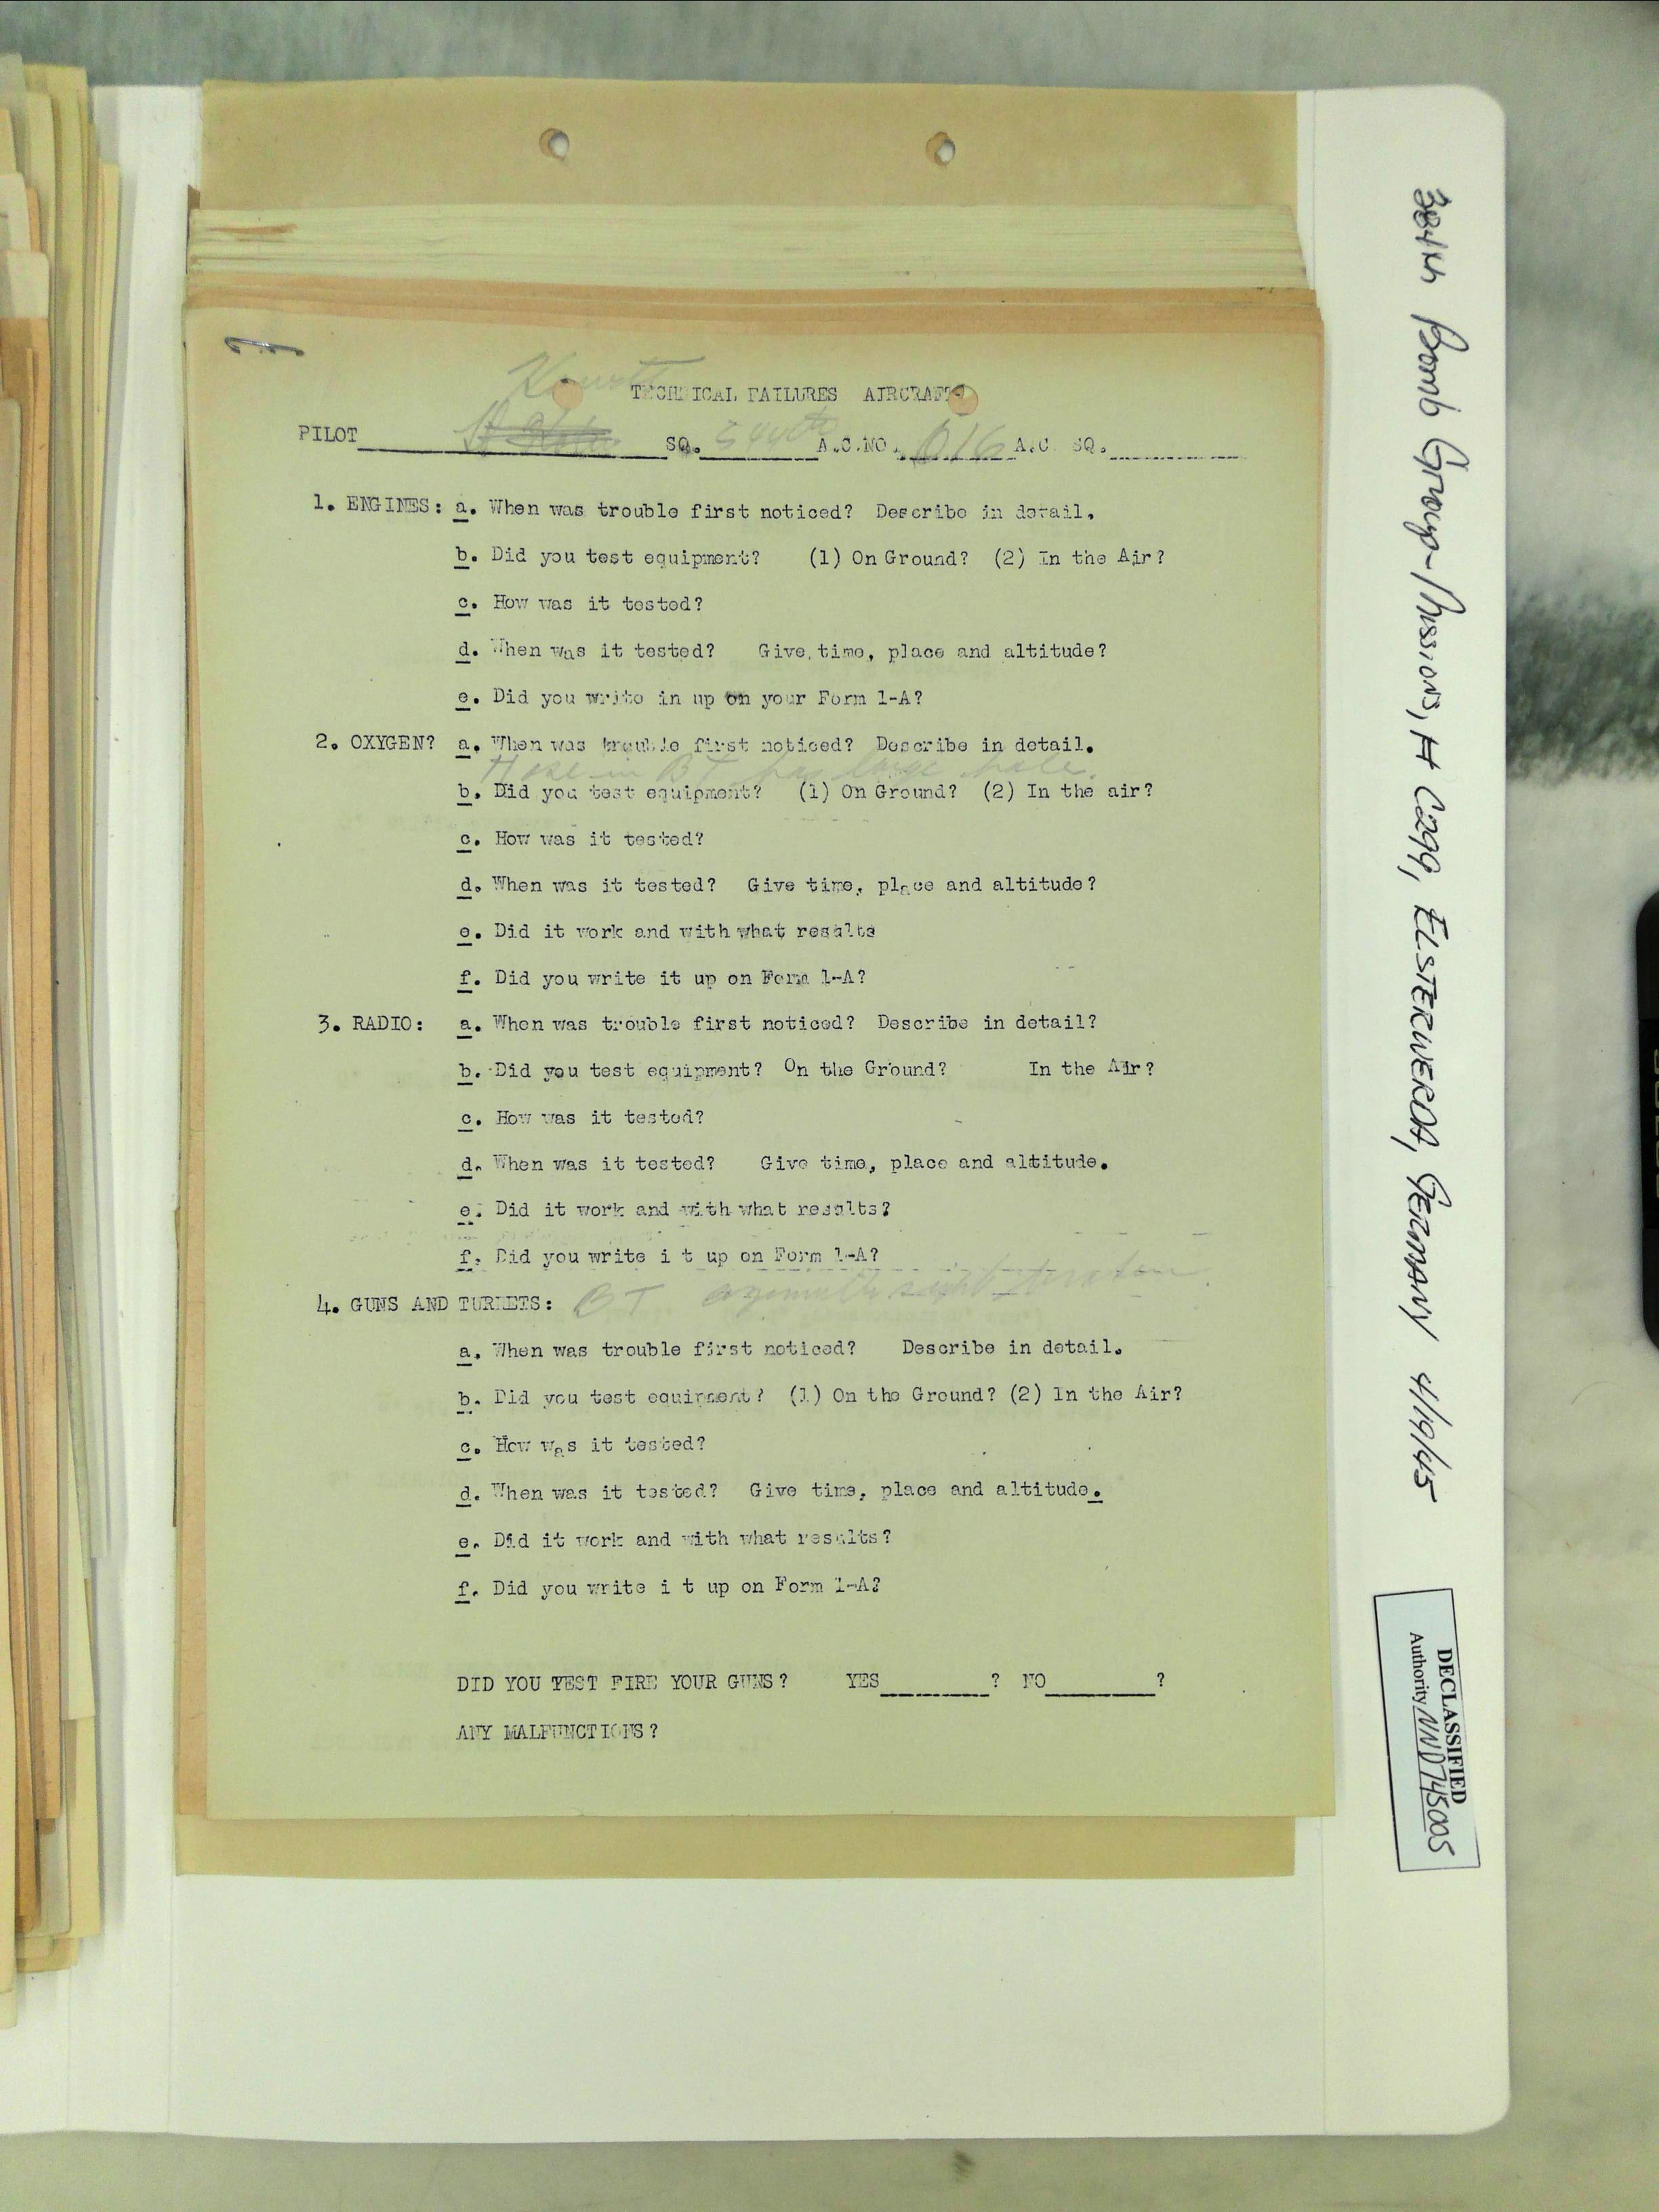 TECHNICAL FAILURES AIRCRAFT
PILOT SQ. 544th A.C.NO. 016 A.C SQ.
1. ENGINES: a. When was trouble first noticed? Describe in detail.
b. Did you test equipment? (1) On Ground? (2) In the Air?
c. How was it tested?
d. When was it tested? Give, time, place and altitude?
e. Did you write in up on your Form 1-A?
2. OXYGEN? a. When was trouble first noticed? Describe in detail.
Hose in BT has large hole.
b. Did you test equipment? (1) On Ground? (2) In the air?
c. How was it tested?
d. When was it tested? Give time, place and altitude?
e. Did it work and with what results
f. Did you write it up on Form 1-A?
3. RADIO: a. When was trouble first noticed? Describe in detail?
b. Did you test equipment? On the Ground? In the Air?
c. How was it tested?
d. When was it tested? Give time, place and altitude.
e. Did it work and with what results?
f. Did you write i t up on Form 1-A?
4. GUNS AND TURRETS: BT azimuth
a. When was trouble first noticed? Describe in detail.
b. Did you test equipment? (1) On the Ground? (2) In the Air?
c. How was it tested?
d. When was it tested? Give time, place and altitude.
e. Did it work and with what results?
f. Did you write i t up on Form 1-A?
DID YOU TEST FIRE YOUR GUNS? YES ? NO ?
ANY MALFUNCTIONS?
384th Bomb Group-Missions, # C299, ELSTERWERDA, GERMANY 4/19/45
DECLASSIFIED
Authority NND745005